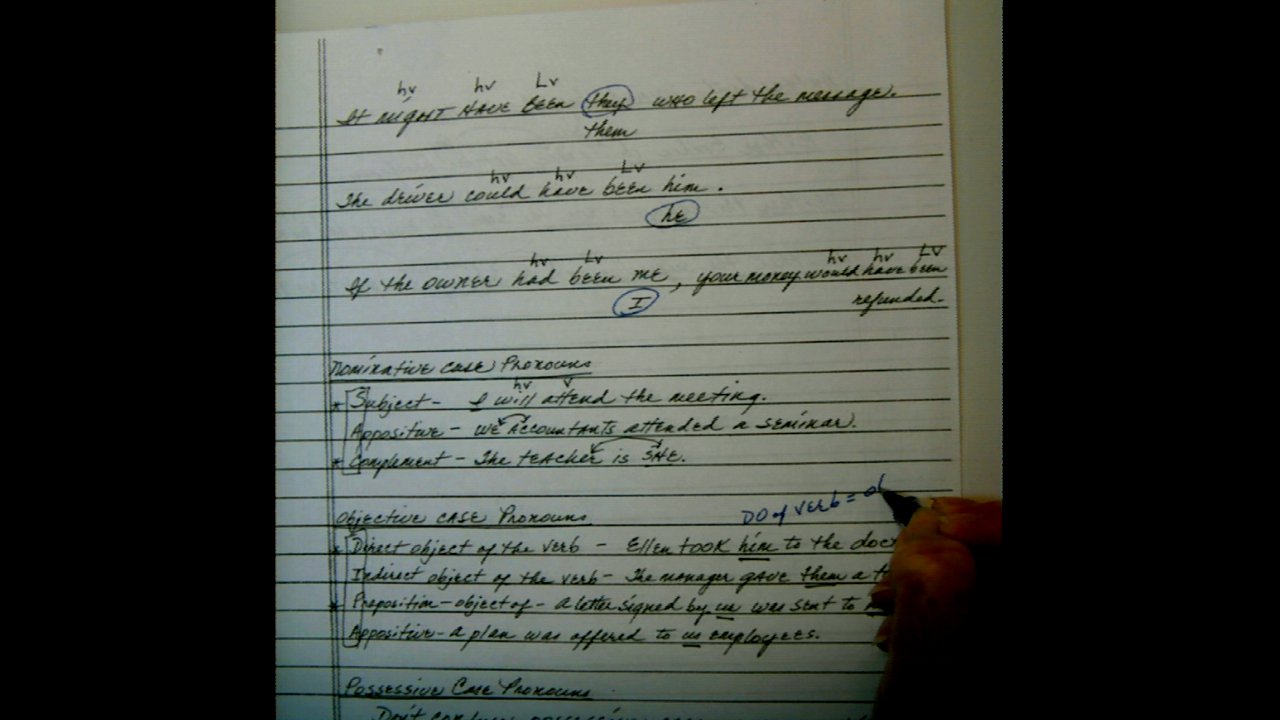 hv hv Lv
It might HAVE BEEN they who left the message.
them
hv hv Lv
The driver could have been him.
he
hv Lv hv hv LV
If the owner had been me, your money would have been
I refunded.
Nominative case Pronouns
hv v
* Subject - I will attend the meeting.
Appositive - we Accountants attended a seminar.
* Complement - The teacher is SHE.
DO of verb = ob
Objective case Pronouns
* Direct object of the verb - Ellen took him to the doct
Indirect object of the verb - The manager gave them a
* Preposition - object of - a letter signed by me was sent to
Appositive - a plan was offered to us employees.
Possessive Case Pronouns
Don't confuse possessive